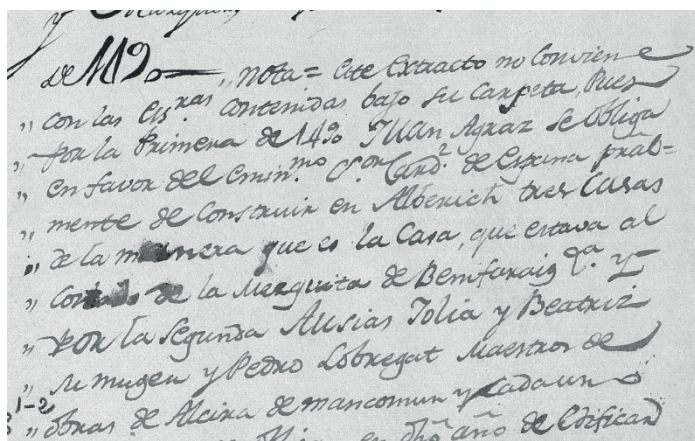 y
de 1490 — „ nota = Este Extracto no Conviene
„ con las Essras contenidas bajo su Carpeta, Pues
„ Por la Primera de 1490 Juan Agraz se obliga
„ en favor del Eminmo Sor Cardl de España prâl-
„ mente de Construir en Alberich tres Casas
„ de la manera que es la Casa, que estava al
„ Costado de la Mezquita de Benifaraig &a y
„ Por la Segunda Ausias Tolia y Beatriz
„ su muger y Pedro Lobregat Maestros de
„ obras de Alcira de mancomun y Cada uno
en dho año de Edificar
1-2